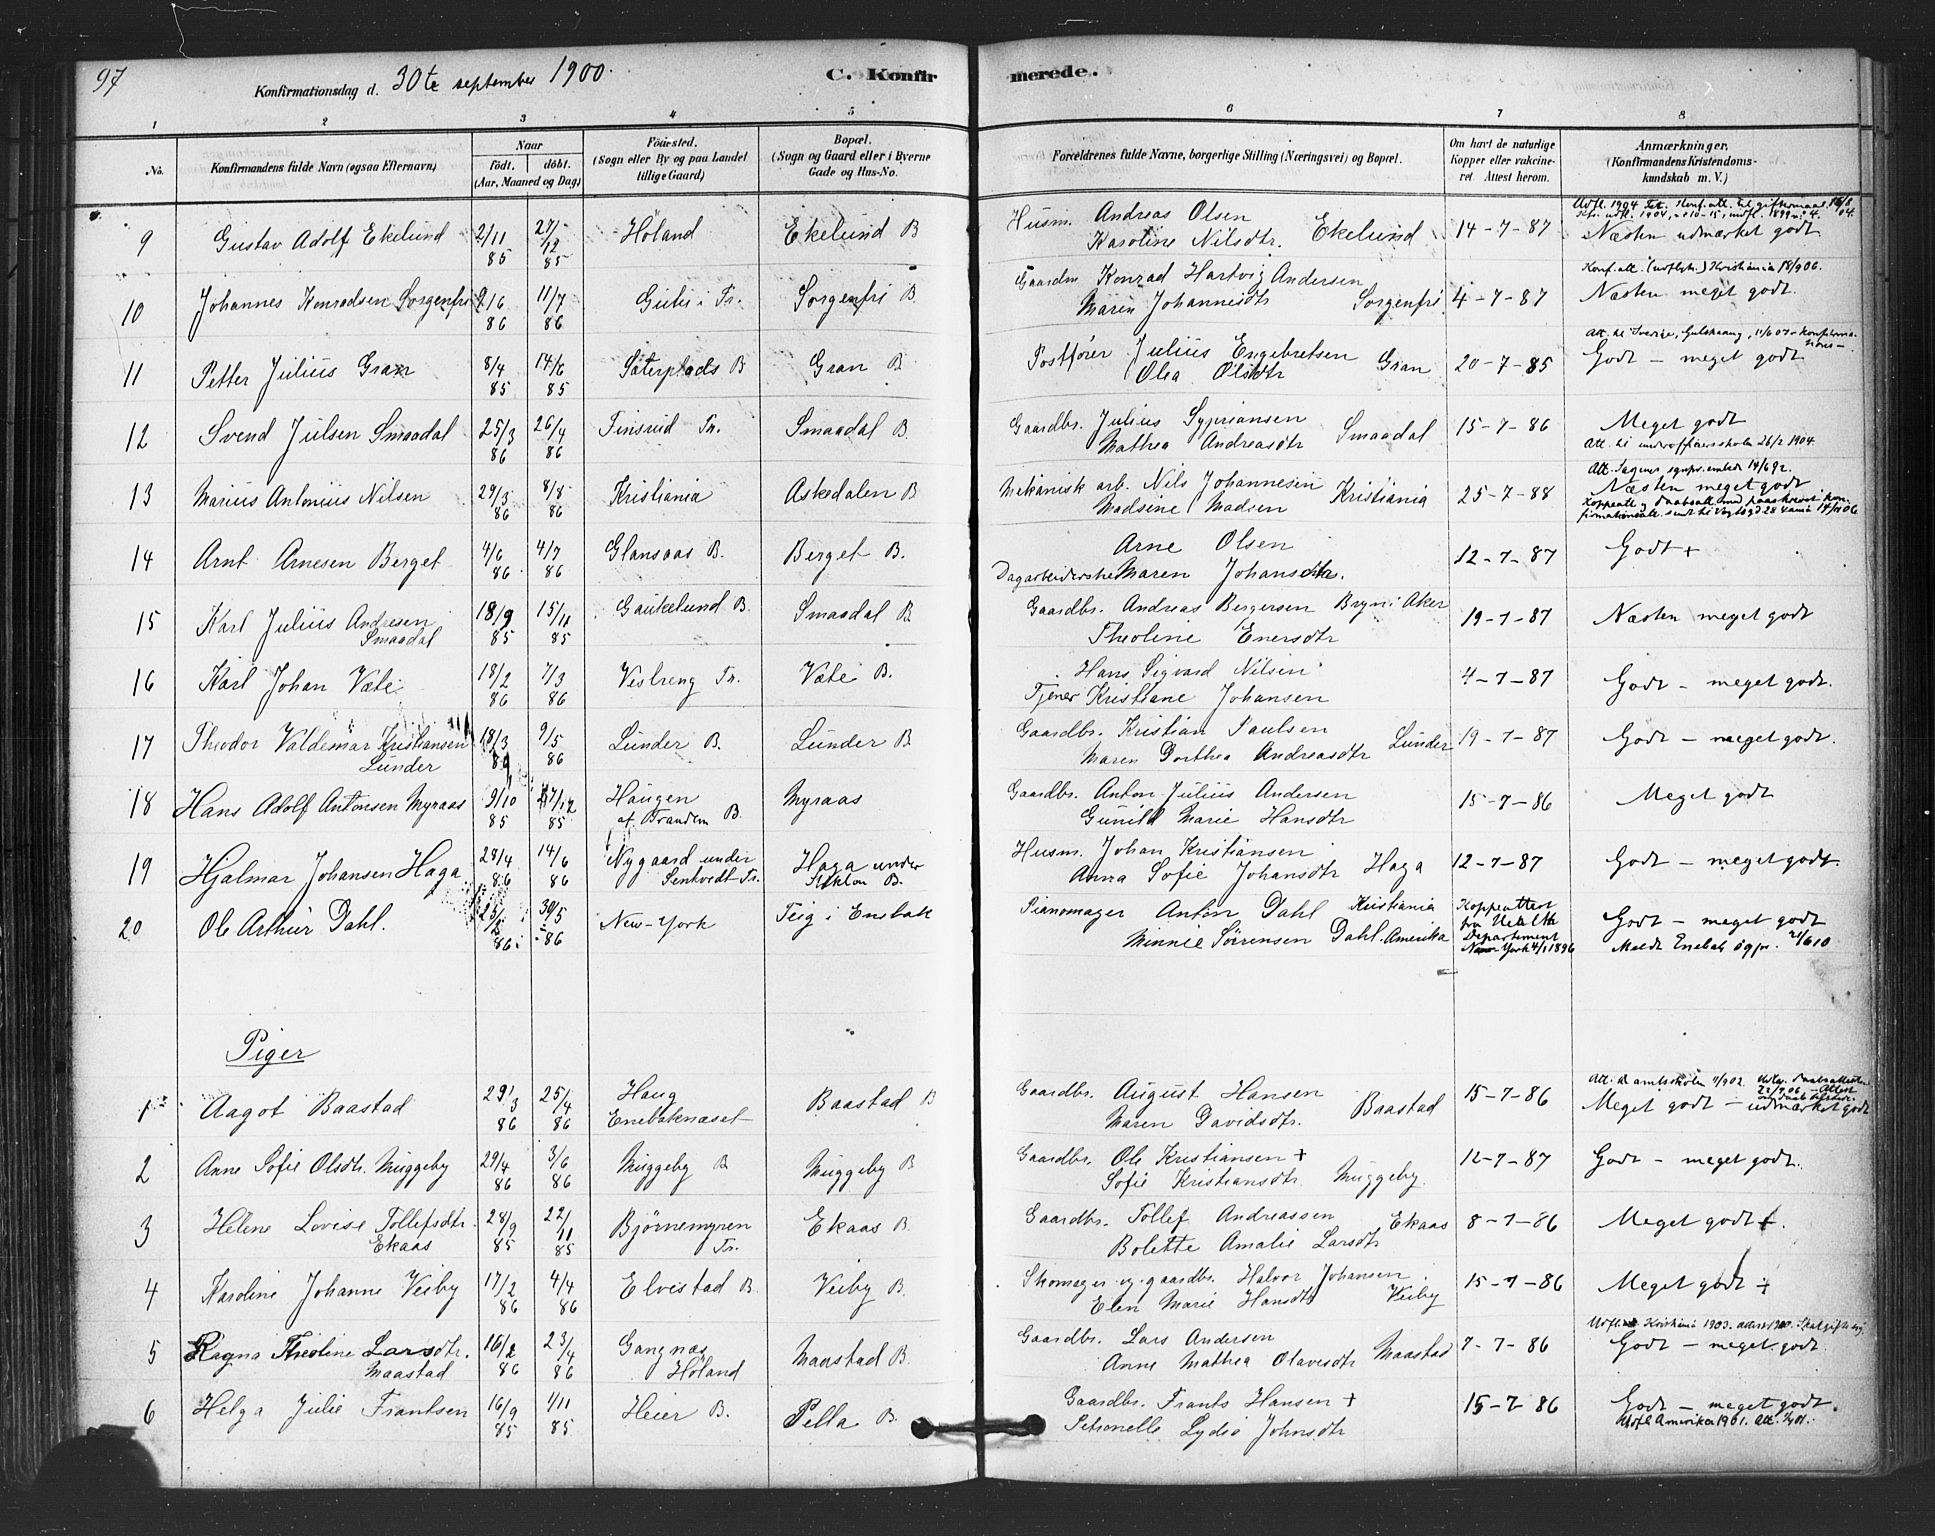 97
Konfirmationsdag d. 30te september 1900.
C. Konfir
merede.
1 2 3 4 5 6 7 8
No.
Konfirmandens fulde Navn (ogsaa Efternavn)
Naar
født. døbt.
(Aar, Maaned og Dag)
Fødested.
(Sogn eller By og paa Landet
tillige Gaard)
Bopæl.
(Sogn og Gaard eller i Byerne
Gade og Hus-No.
Forældrenes fulde Navne, borgerlige Stilling (Næringsvei) og Bopæl.
Om havt de naturlige
Kopper eller vakcine-
ret Attest herom.
Anmærkninger.
(Konfirmandens Kristendoms-
kundskab m. V.)
9 Gustav Adolf Ekelund 2/11 85 27/12 85 Høland Ekelund B
Husm. Andreas Olsen
Karoline Nilsdtr. Ekelund 14-7-87 Næsten udmærket godt
10 Johannes Konradsen Sorgenfri 2/6 86 11/7 86 Gubu i Tr. Sorgenfri B.
Gaardm Konrad Hartvig Andersen
Maren Johannesdtr Sorgenfri 4-7-87 Næsten meget godt.
Konf.att. (udflytn.) Kristiania 18/9 06.
11 Petter Julius Gran 8/4 85 14/6 85 Sæterplads B Gran B
Postfører Julius Engebretsen
Olea Olsdtr Gran 20-7-85 Godt - meget godt
12 Svend Julsen Smaadal 25/3 86 26/4 86 Finsrud Tr. Smaadal B.
Gaardbr. Julius Sypriansen
Mathea Andreasdtr Smaadal 15-7-86 Meget godt
Att. til underofficersskolen 26/2 1904.
13 Marius Antonius Nilsen 29/3 86 8/8 86 Kristiania Askedalen B
Mekanisk arb. Nils Johannesen
Madsine Madsen Kristiania 25-7-88 Næsten meget godt
14 Arnt Arnesen Berget 4/6 86 4/7 86 Glansaas B. Berget B.
Arne Olsen
Maren Johansdtr. 12-7-87 Godt +
15 Karl Julius Andresen
Smaadal 18/9 85 15/11 85 Gaukelund B. Smaadal B
Gaardbr. Andreas Bergersen Bryn i Aker
Theoline Enersdtr 19-7-87 Næsten meget godt
16 Karl Johan Væte 18/2 86 7/3 86 Vestreng Tr. Væte B.
Hans Sigvard Nilsen
Tjener Kristiane Johansen 4-7-87 Godt - meget godt.
17 Theodor Valdemar Kristiansen
Lunder 18/3 86 9/5 86 Lunder B. Lunder B
Gaardbr. Kristian Paulsen
Maren Dorthea Andreasdtr Lunder 19-7-87 Godt - meget godt.
18 Hans Adolf Antonsen Myraas 9/10 85 17/12 85 Haugen
af Brandem B. Myraas
Gaardbr. Anton Julius Andersen
Gunild Marie Hansdtr 15-7-86 Meget godt
19 Hjalmar Johansen Haga 28/4 86 14/6 86 Nygaard under
Sentvedt Tr. Haga under
B.
Husm. Johan Kristiansen
Anna Sofie Johansdtr Haga 12-7-87 Godt - meget godt.
20 Ole Arthur Dahl. 86 30/5 86 New-York Teig i Enebak
Pianomager Anton Dahl Kristiania
Minnie Sørensen Dahl. Amerika
Koppeattest
fra Health
Departement
New York 4/1 1896
Godt - meget godt
Meldt Enebak sgpr. 21/6 10
Piger
1 Aagot Baastad 29/3 86 25/4 86 Haug
Enebaknæset Baastad B
Gaardbr. August Hansen
Maren Davidsdtr. Baastad 15-7-86
Meget godt - udmærket godt
2 Anne Sofie Olsdtr. Muggeby 29/4 86 3/6 86 Muggeby B Muggeby B
Gaardbr. Ole Kristiansen +
Sofie Kristiansdtr. Muggeby. 12-7-87 Godt - meget godt.
3 Helene Lovise Tollefsdtr.
Ekaas 28/9 85 22/11 85 Bjørnemyren
Tr. Ekaas B.
Gaardbr. Tollef Andreassen Ekaas
Bolette Amalie Larsdtr 8-7-86 Meget godt +.
4 Karoline Johanne Veiby 17/2 86 4/4 86 Elvestad B. Veiby B.
Skomager og gaardbr. Halvor Johansen
Elen Marie Hansdtr Veiby 15-7-86 Meget godt +
5 Ragna Theoline Larsdtr.
Maastad 16/2 86 23/4 86 Gangnæs
Høland Maastad B.
Gaardbr. Lars Andersen
Anne Mathea Olavesdtr Maastad 7-7-86 Godt - meget godt
6 Helga Julie Frantsen 16/9 85 1/11 85 Heier B. Pella B.
Gaardbr. Frants Hansen +
Petronelle Lydia Johnsdtr 15-7-86 Godt - meget godt.
Udfl. Amerika 1901. Att.